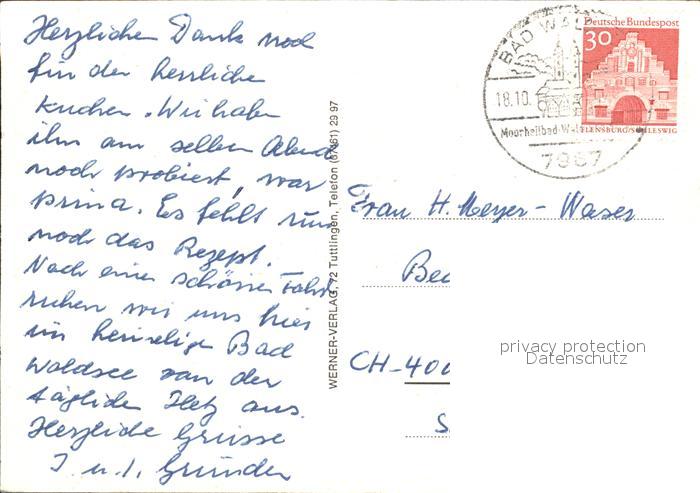 Herzlichen Dank noch
für den herrlichen
Kuchen. Wir haben
ihn am selben Abend
noch probiert, war
prima. Es fehlt nun
noch das Rezept.
Nach einer schönen Fahrt
ruhen wir uns hier
im heimeligen Bad
Waldsee von der
täglichen Hetz aus.
Herzliche Grüsse
J. u. I. Gründer
WERNER-VERLAG, 72 Tuttlingen, Telefon (07461) 29 97
BAD WAL
18.10.
Moorheilbad
7967
Deutsche Bundespost
30
FLENSBURG/SCHLESWIG
Frau H. Meyer-Waser
CH-400
privacy protection
Datenschutz